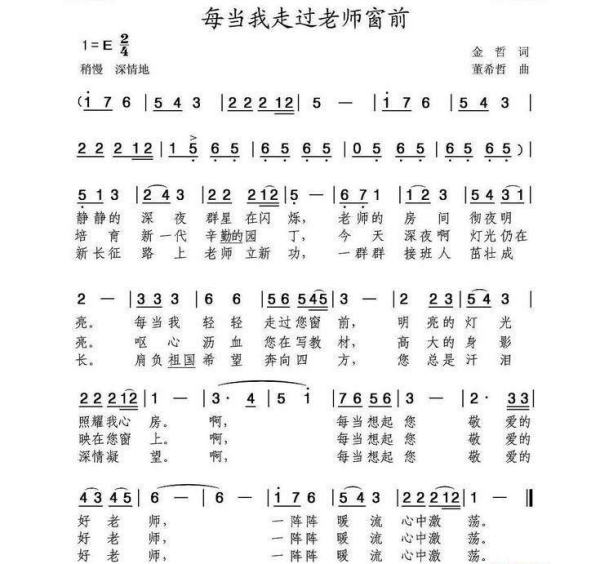 每当我走过老师窗前
1=E 2/4
稍慢 深情地
金哲 词
董希哲 曲
(i 7 6 | 5 4 3 | 2 2 2 1 2 | 5 — | i 7 6 | 5 4 3 |
2 2 2 1 2 | 1 5 6 5 | 6 5 6 5 | 0 5 6 5 | 6 5 6 5) |
5 1 3 | 2 4 3 | 2 2 2 1 2 | 5 — | 6 7 1 | 1 2 3 | 5 3 2 1 |
静静的 深夜 群星在闪烁, 老师的 房间 彻夜明
培育新一代 辛勤的园丁, 今天深夜啊 灯光仍在
新长征 路上 老师立新功, 一群群 接班人 茁壮成
2 — | 3 3 3 | 6 6 | 5 6 5 4 5 | 3 — | 2 1 2 3 | 5 4 3 |
亮。 每当我 轻轻 走过您窗前, 明亮的灯光
亮。 呕心沥血 您在写教材, 高大的身影
长。 肩负祖国希望 奔向四方, 您总是汗泪
2 2 2 1 2 | 1 — | 3· 4 | 5 1 | 7 6 5 6 | 3 2· | 2 3 3 |
照耀我心房。 啊, 每当想起您 敬爱的
映在您窗上。 啊, 每当想起您 敬爱的
深情凝望。 啊, 每当想起您 敬爱的
4 3 4 5 | 6 — | 6 — | i 7 6 | 5 4 3 | 2 2 2 1 2 | 1 — ‖
好老师, 一阵阵 暖流 心中激荡。
好老师, 一阵阵 暖流 心中激荡。
好老师, 一阵阵 暖流 心中激荡。